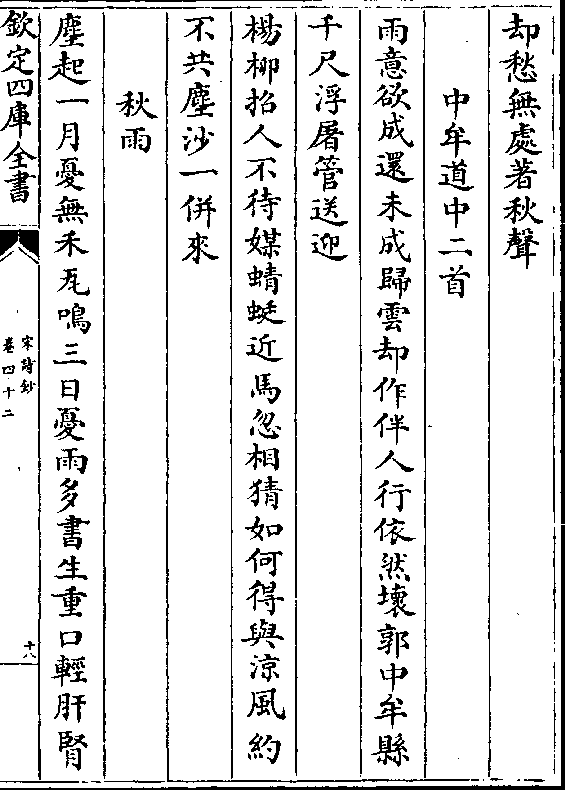 却愁無處著秋聲
中牟道中二首
雨意欲成還未成歸雲却作伴人行依然壞郭中牟縣
千尺浮屠管送迎
楊柳招人不待媒蜻蜓近馬忽相猜如何得與涼風約
不共塵沙一併來
秋雨
塵起一月憂無禾瓦鳴三日憂雨多書生重口輕肝腎
欽定四庫全書
宋詩鈔
卷四十二
十八